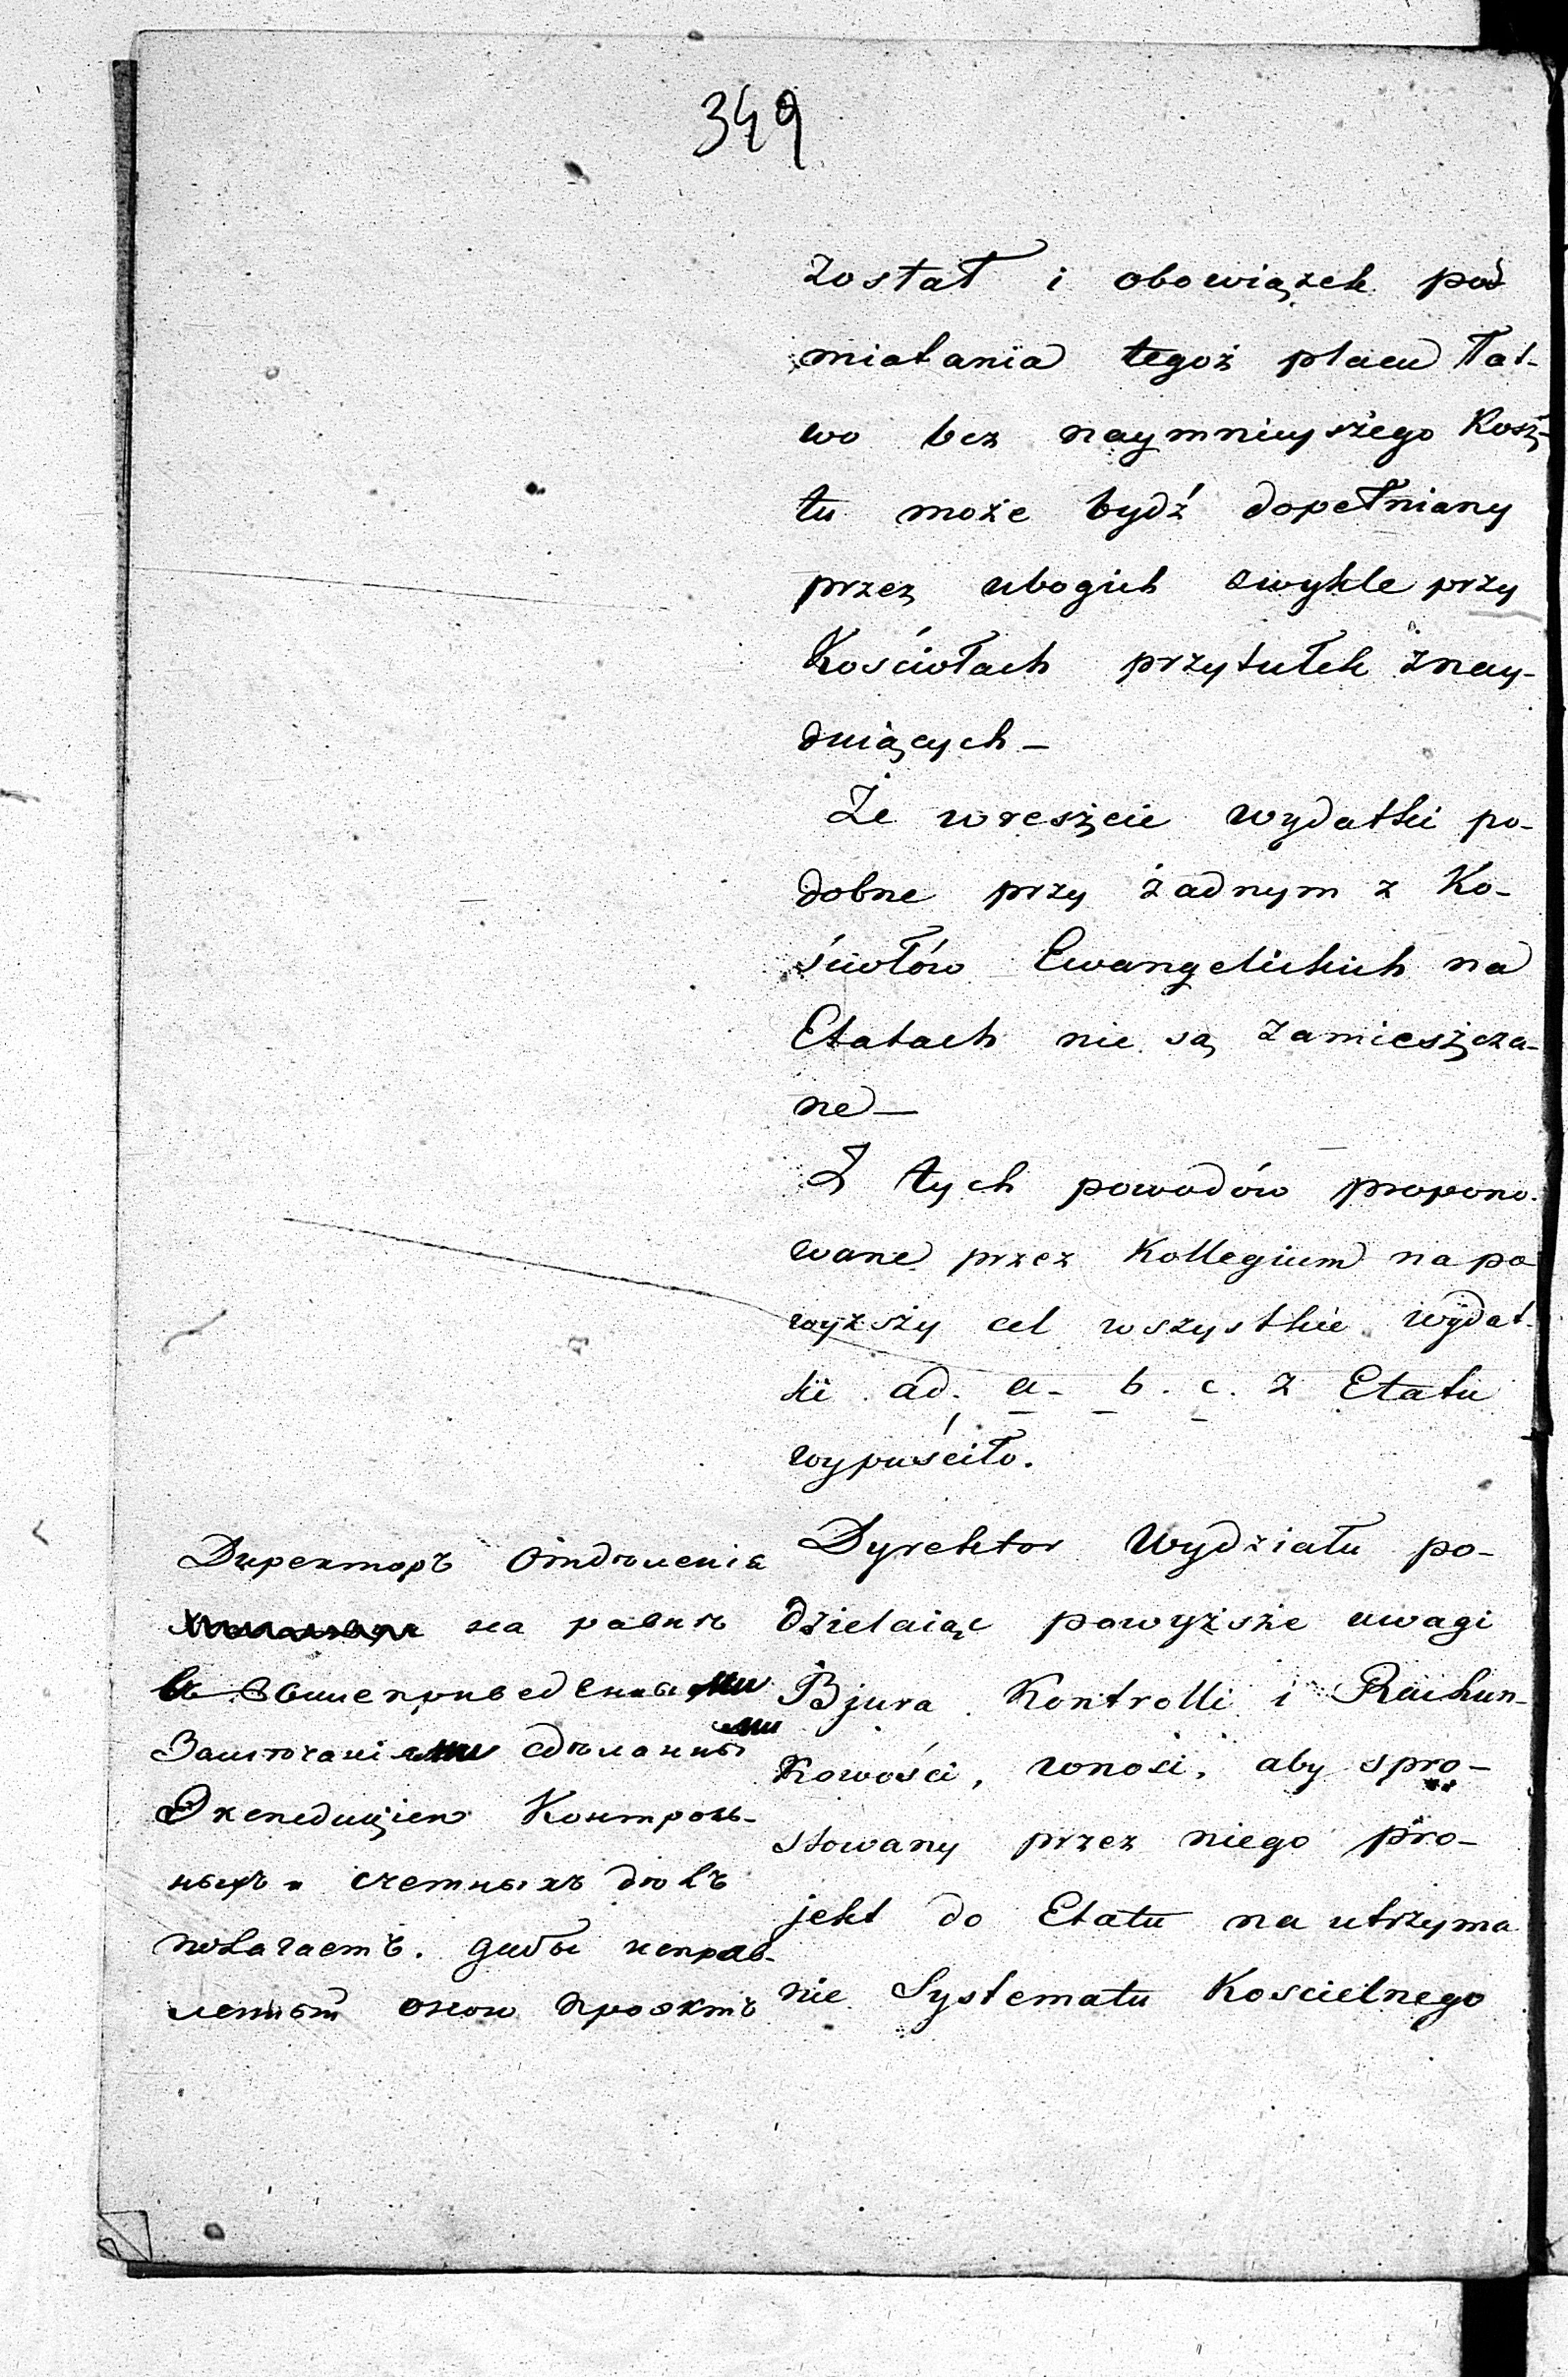 349
został i obowiązek pod
miatania tegoż placu łat-
wo bez naymnieyszego Kosz-
tu może bydź dopełniany
przez ubogich zwykle przy
Kościołach przytułek znay-
duiących –
Że wreszcie wydatki po-
dobne przy żadnym z Ko-
ściołów Ewangelickich na
Etatach nie są zamieszcza-
ne –
Z tych powodów propono-
wane przez Kollegium na po
wyższy cel wszystkie wydat-
ki ad. a. b. c. z Etatu
wypuściło.
Dyrektor Wydziału po-
dzielaiąc powyższe uwagi
Bjura Kontrolli i Rachun-
kowości, wnosi, aby spro-
stowany przez niego pro-
jekt do Etatu na utrzyma
nie Systematu Koscielnego
Директоръ Отдѣленія
на равнѣ
въ вышеприведенными
Замѣчаніями сдѣланными
Экспедиціею Контроль-
ныхъ и счетныхъ дѣлъ
полагаетъ. дабы исправ-
ленный оною проэктъ